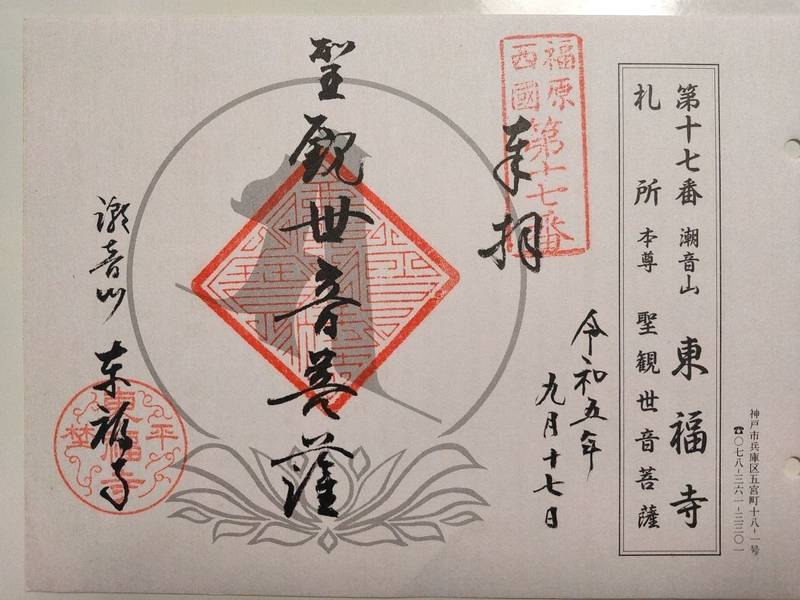 第十七番 潮音山 東福寺
札所 本尊 聖観世音菩薩
神戸市兵庫区五宮町十八-一号
☎〇七八-三六一-三三〇一
福原
西國
第十七番
奉拝
令和五年
九月十七日
聖観世音菩薩
潮音山 東福寺
東福寺
平野